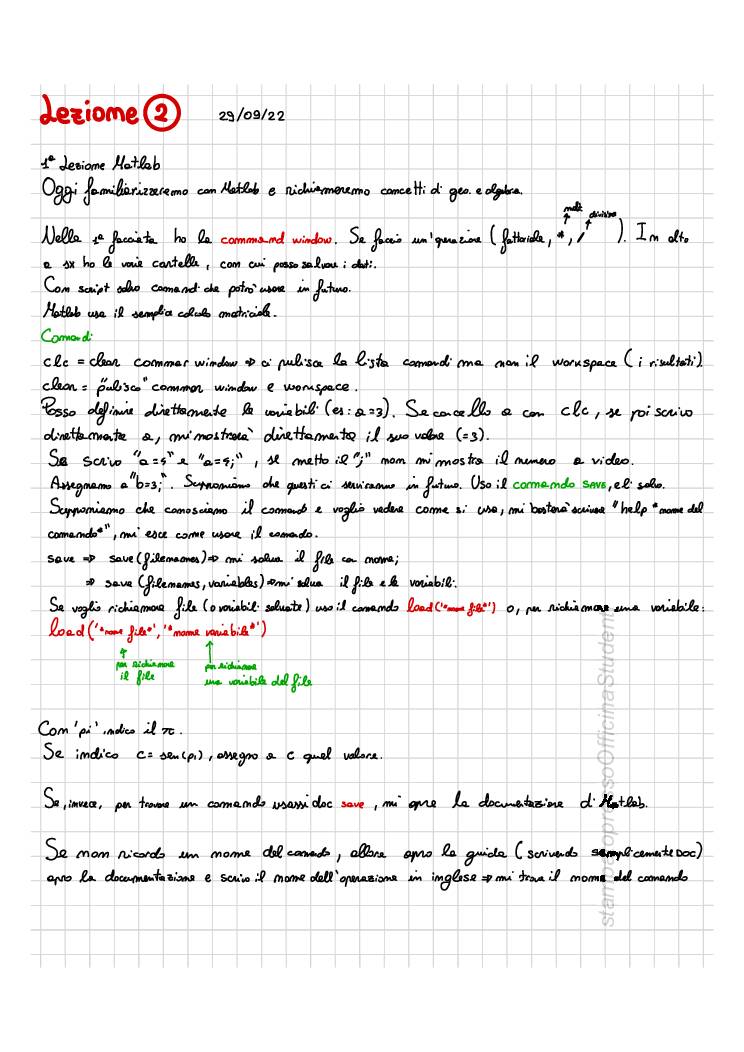 Lezione 2 29/09/22
1ª Lezione Matlab
Oggi familiarizzeremo con Matlab e richiameremo concetti di geo. e algebra.
molt. divisione
Nella 1ª facciata ho la command window. Se faccio un'operazione (fattoriale, *, /). In alto
a sx ho le varie cartelle, con cui posso salvare i dati.
Con script salvo comandi che potrò usare in futuro.
Matlab usa il semplice calcolo matriciale.
Comandi
clc = clear commar window ⇒ ci pulisce la lista comandi ma non il workspace (i risultati)
clear = "pulisco" common window e workspace.
Posso definire direttamente le variabili (es: a=3). Se cancello a con clc, se poi scrivo
direttamente a, mi mostrerà direttamente il suo valore (=3).
Se scrivo "a=4" e "a=4;", se metto il ";" non mi mostra il numero a video.
Assegnamo a "b=3;". Supponiamo che questi ci serviranno in futuro. Uso il comando SAVE, e li salvo.
Supponiamo che conosciamo il comando e voglio vedere come si usa, mi basterà scrivere "help *nome del
comando*", mi esce come usare il comando.
save ⇒ save(filenames) ⇒ mi salva il file con nome;
⇒ save (filenames, variables) ⇒ mi salva il file e le variabili.
Se voglio richiamare file (o variabili salvate) uso il comando load('*nome file*') o, per richiamare una variabile:
load('*nome file*', '*nome variabile*')
per richiamare per richiamare
il file una variabile del file
Con 'pi' indico il π.
Se indico c= sen(pi), assegno a c quel valore.
Se, invece, per trovare un comando usassi doc save, mi apre la documentazione di Matlab.
Se non ricordo un nome del comando, allora apro la guida (scrivendo semplicemente DOC)
apro la documentazione e scrivo il nome dell'operazione in inglese ⇒ mi trova il nome del comando
stampatopressoOfficinaStudenti